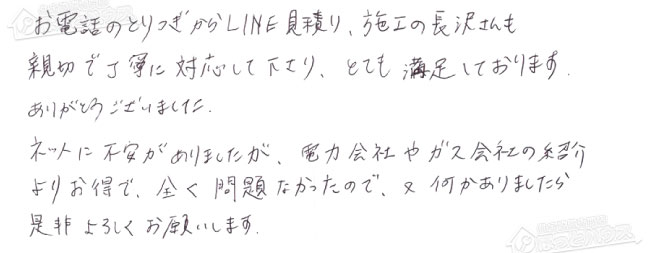 お電話のとりつぎからLINE見積り、施工の長沢さんも
親切で丁寧に対応して下さり、とても満足しております.
ありがとうございました.
ネットに不安がありましたが、電力会社やガス会社の紹介
よりお得で、全く問題なかったので、又何かありましたら
是非よろしくお願いします.